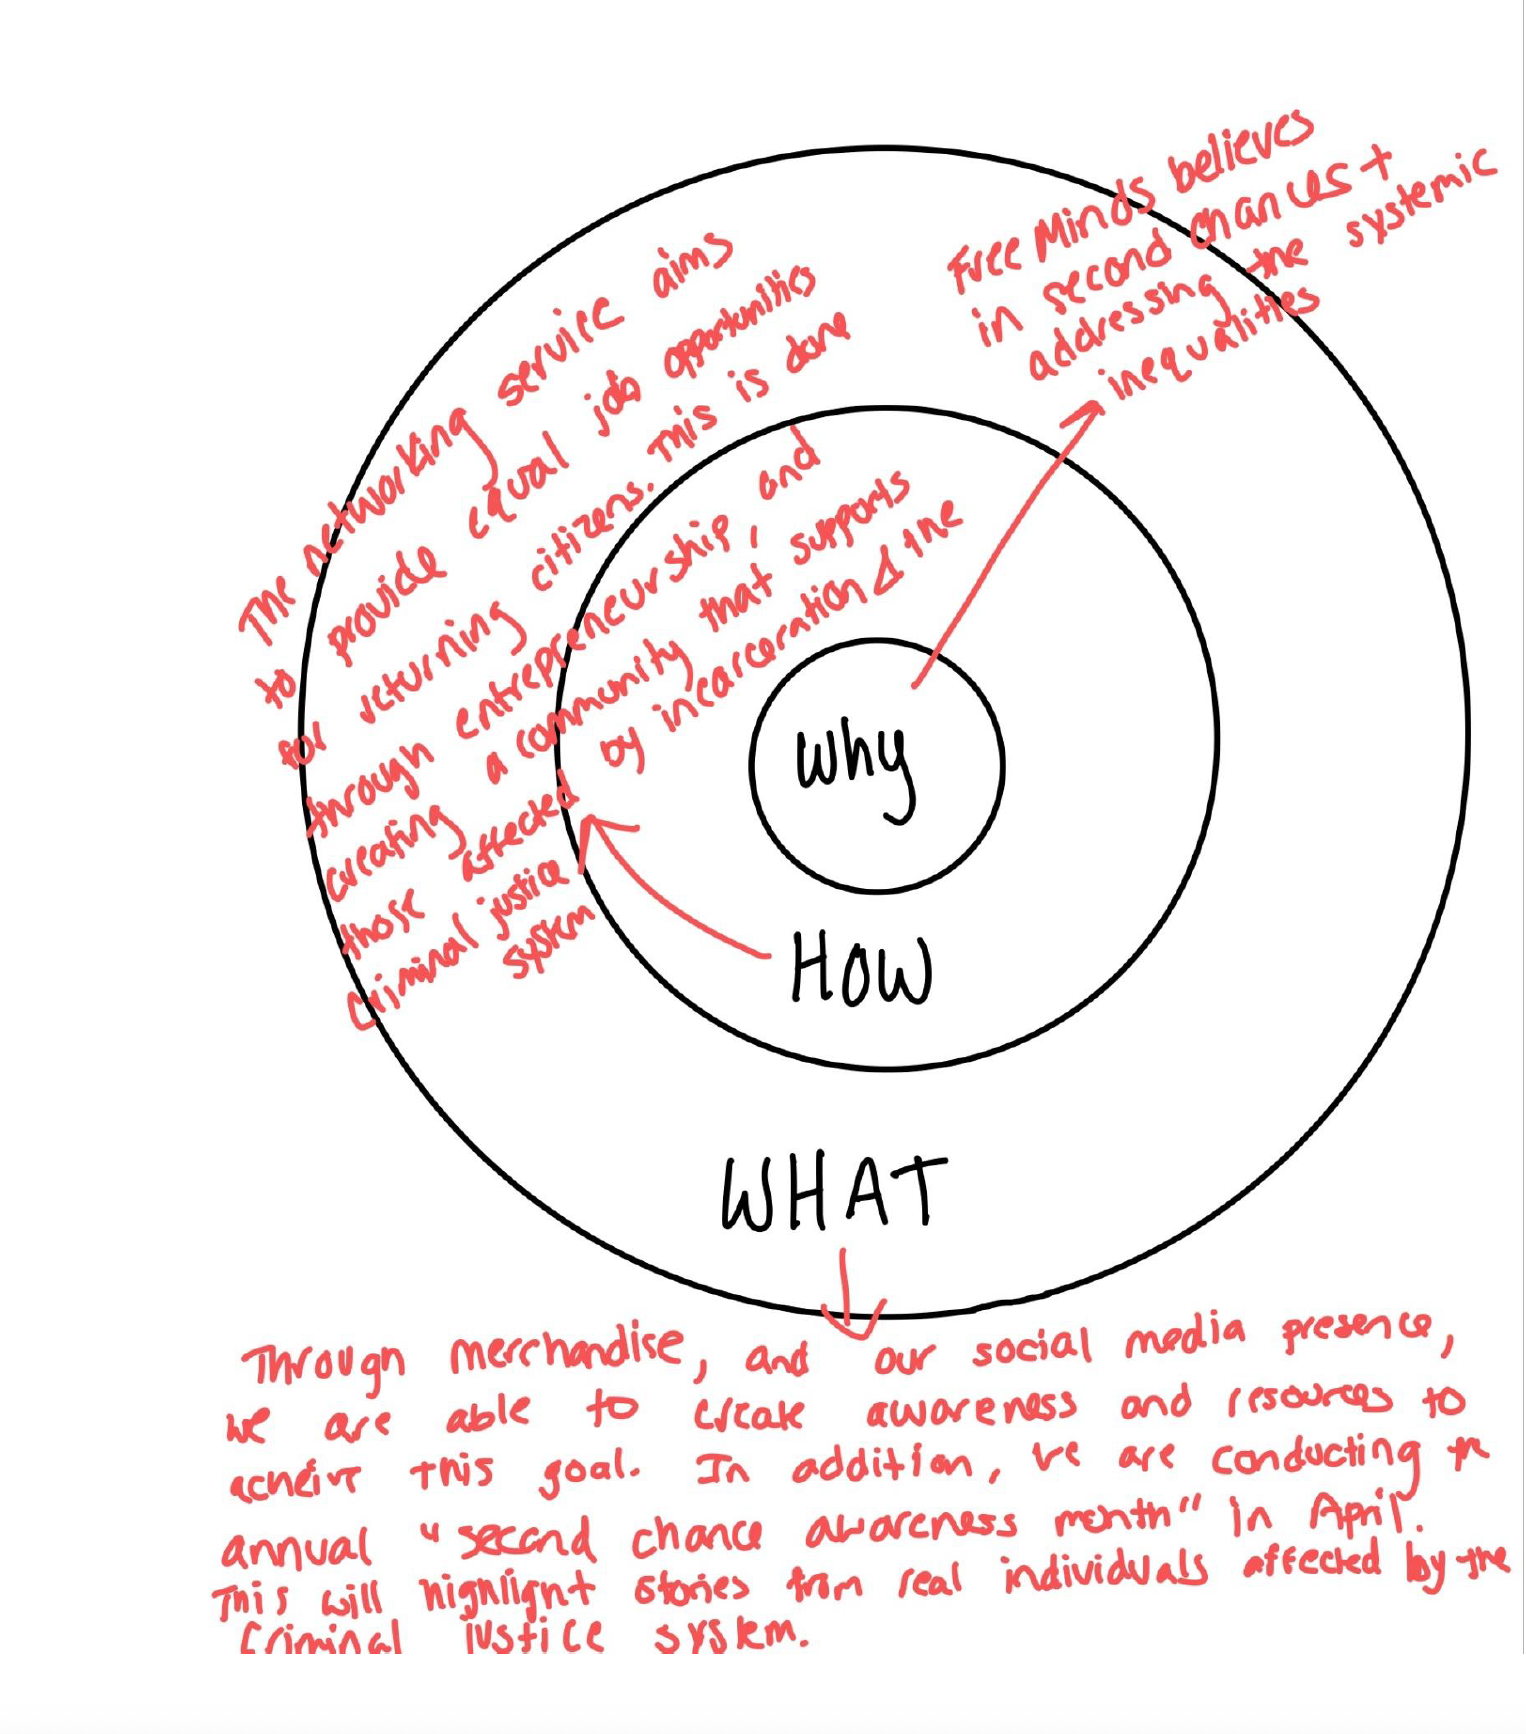 Free Minds believes
in second chances +
addressing the systemic
inequalities
The networking service aims
to provide equal job opportunities
for returning citizens. This is done
through entrepreneurship, and
creating a community that supports
those affected by incarceration & the
criminal justice
system
Why
HOW
WHAT
Through merchandise, and our social media presence,
we are able to create awareness and resources to
acheive this goal. In addition, we are conducting the
annual "second chance awareness month" in April.
This will highlight stories from real individuals affected by the
Criminal justice system.